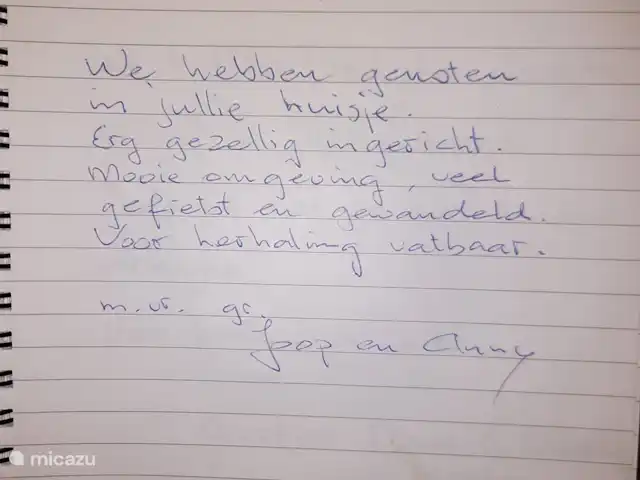 We hebben genoten
in jullie huisje.
Erg gezellig ingericht.
Mooie omgeving, veel
gefietst en gewandeld.
Voor herhaling vatbaar.
m.vr. gr.
Joop en Anny
micazu